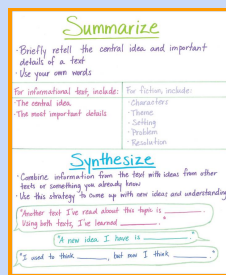 Summarize
· Briefly retell the central idea and important
details of a text
· Use your own words
For informational text, include:
· The central idea
· The most important details
For fiction, include:
· Characters
· Theme
· Setting
· Problem
· Resolution
Synthesize
· Combine information from the text with ideas from other
texts or something you already know
· Use this strategy to come up with new ideas and understanding
"Another text I've read about this topic is ______.
Using both texts, I've learned ______."
"A new idea I have is ______."
"I used to think ______, but now I think ______."